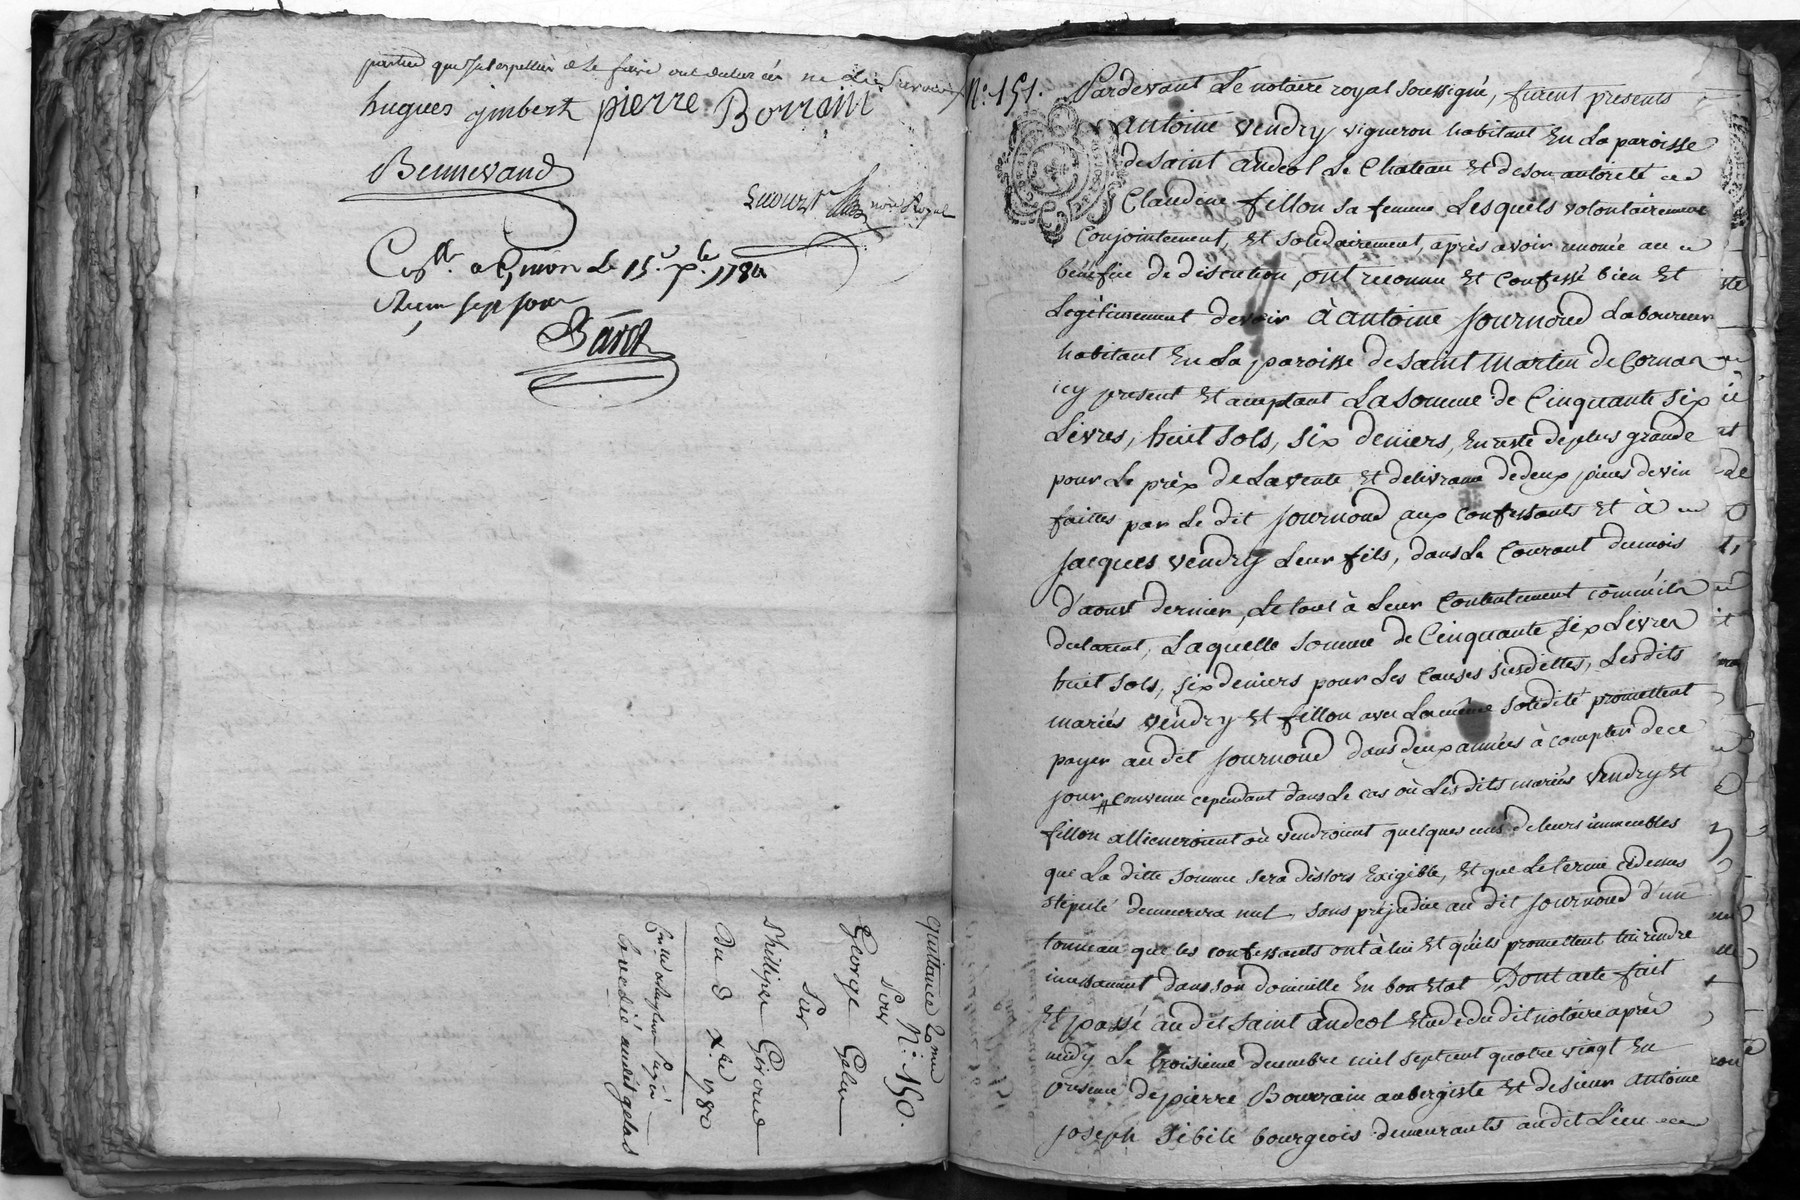 parties que
hugues jmbert pierre Borrain
Bennevand
Royal
a Givors Le 15. Xbre 1780
Reçu sept sous
quittance
N° 150.
Pour
George Galin
Sur
Phillipe Giroud
Du 3 Xbre 1780
Expedié audit galin
N° 151. Pardevant Le notaire royal soussigné, furent presents
antoine vendry vigneron habitant En La paroisse
de saint andeol Le Chateau Et de son autorité
Claudine fillon sa femme Lesquels volontairement
Conjointement, Et solidairement, après avoir renoncé au
bénéfice de discution, ont reconnu Et Confessé bien Et
Légitimement devoir à antoine journoud Laboureur
habitant En La paroisse de saint Martin de Cornas
icy present Et acceptant La somme de Cinquante six
Livres, huit sols, six deniers, En reste de plus grande
pour Le prix de La vente Et delivrance de deux pieces de vin
faittes par Le dit journoud aux confessants Et à
jacques vendry Leur fils, dans Le Courant du mois
d'aoust dernier, Le tout à Leur Contentement comme ils
declarent, Laquelle somme de Cinquante six Livres
huit sols, six deniers pour Les Causes susdittes, Les dits
mariés vendry Et fillon avec La même solidité promettent
payer au dit journoud dans deux années à compter de ce
jour, convenu cependant dans Le cas où Les dits mariés vendry Et
fillon allieneroient où vendroient quelques uns de leurs immeubles
que La ditte somme sera dèslors Exigible, Et que Le terme cy dessus
stipulé demeurera nul, sans prejudice au dit journoud d'un
tonneau que les confessants ont à lui Et qu'ils promettent lui rendre
incessament dans son domicille En bon Etat Dont acte fait
Et passé au dit saint andeol Etude du dit notaire après
midy Le troisieme decembre mil sept cent quatre vingt En
presence de pierre Bourrain aubergiste Et de sieur antoine
joseph Sibile bourgeois demeurants au dit Lieu